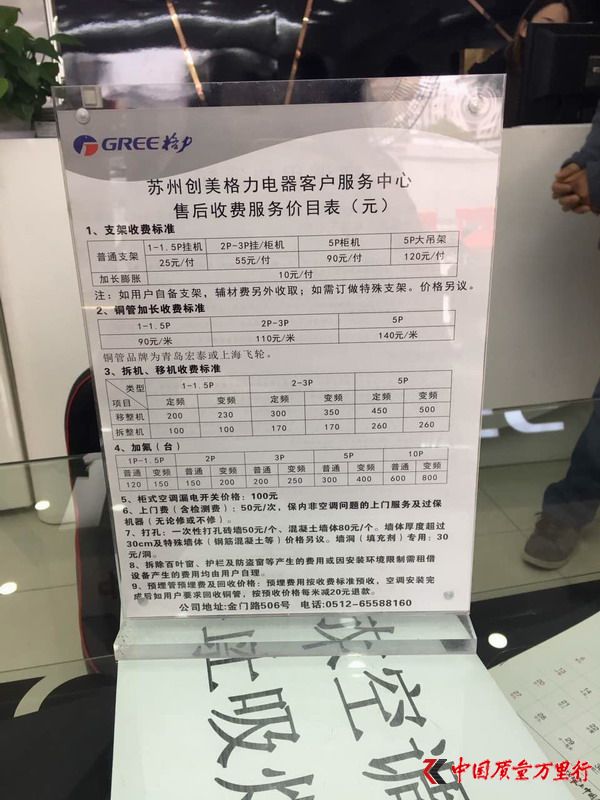 GREE 格力
苏州创美格力电器客户服务中心
售后收费服务价目表（元）
1、支架收费标准
普通支架 1-1.5P挂机 2P-3P挂/柜机 5P柜机 5P大吊架
25元/付 55元/付 90元/付 120元/付
加长膨胀 10元/付
注：如用户自备支架，辅材费另外收取；如需订做特殊支架。价格另议。
2、铜管加长收费标准
1-1.5P 2P-3P 5P
90元/米 110元/米 140元/米
铜管品牌为青岛宏泰或上海飞轮。
3、拆机、移机收费标准
类型 1-1.5P 2-3P 5P
项目 定频 变频 定频 变频 定频 变频
移整机 200 230 300 350 450 500
拆整机 100 100 170 170 260 260
4、加氟（台）
1P-1.5P 2P 3P 5P 10P
普通 变频 普通 变频 普通 变频 普通 变频 普通 变频
120 150 150 200 200 250 300 400 600 800
5、柜式空调漏电开关价格：100元
6、上门费（含检测费）：50元/次，保内非空调问题的上门服务及过保
机器（无论修或不修）。
7、打孔：一次性打孔砖墙50元/个、混凝土墙体80元/个。墙体厚度超过
30cm及特殊墙体（钢筋混凝土等）价格另议。墙洞（填充剂）专用：30
元/洞。
8、拆除百叶窗、护栏及防盗窗等产生的费用或因安装环境限制需租借
设备产生的费用均由用户自理。
9、预埋管预埋费及回收价格：预埋费用按收费标准预收，空调安装完
成后如用户要求回收铜管，按预收价格每米减20元退款。
公司地址:金门路506号 电话:0512-65588160
空调
吸
中国质量万里行